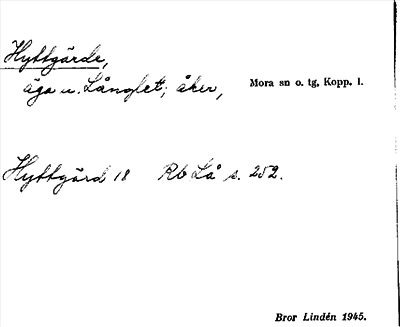 Hyttgärde,
äga u. Långlet; åker, Mora sn o. tg, Kopp. l.
Hyttgärd 18 Rb Lå s. 252.
Bror Lindén 1945.